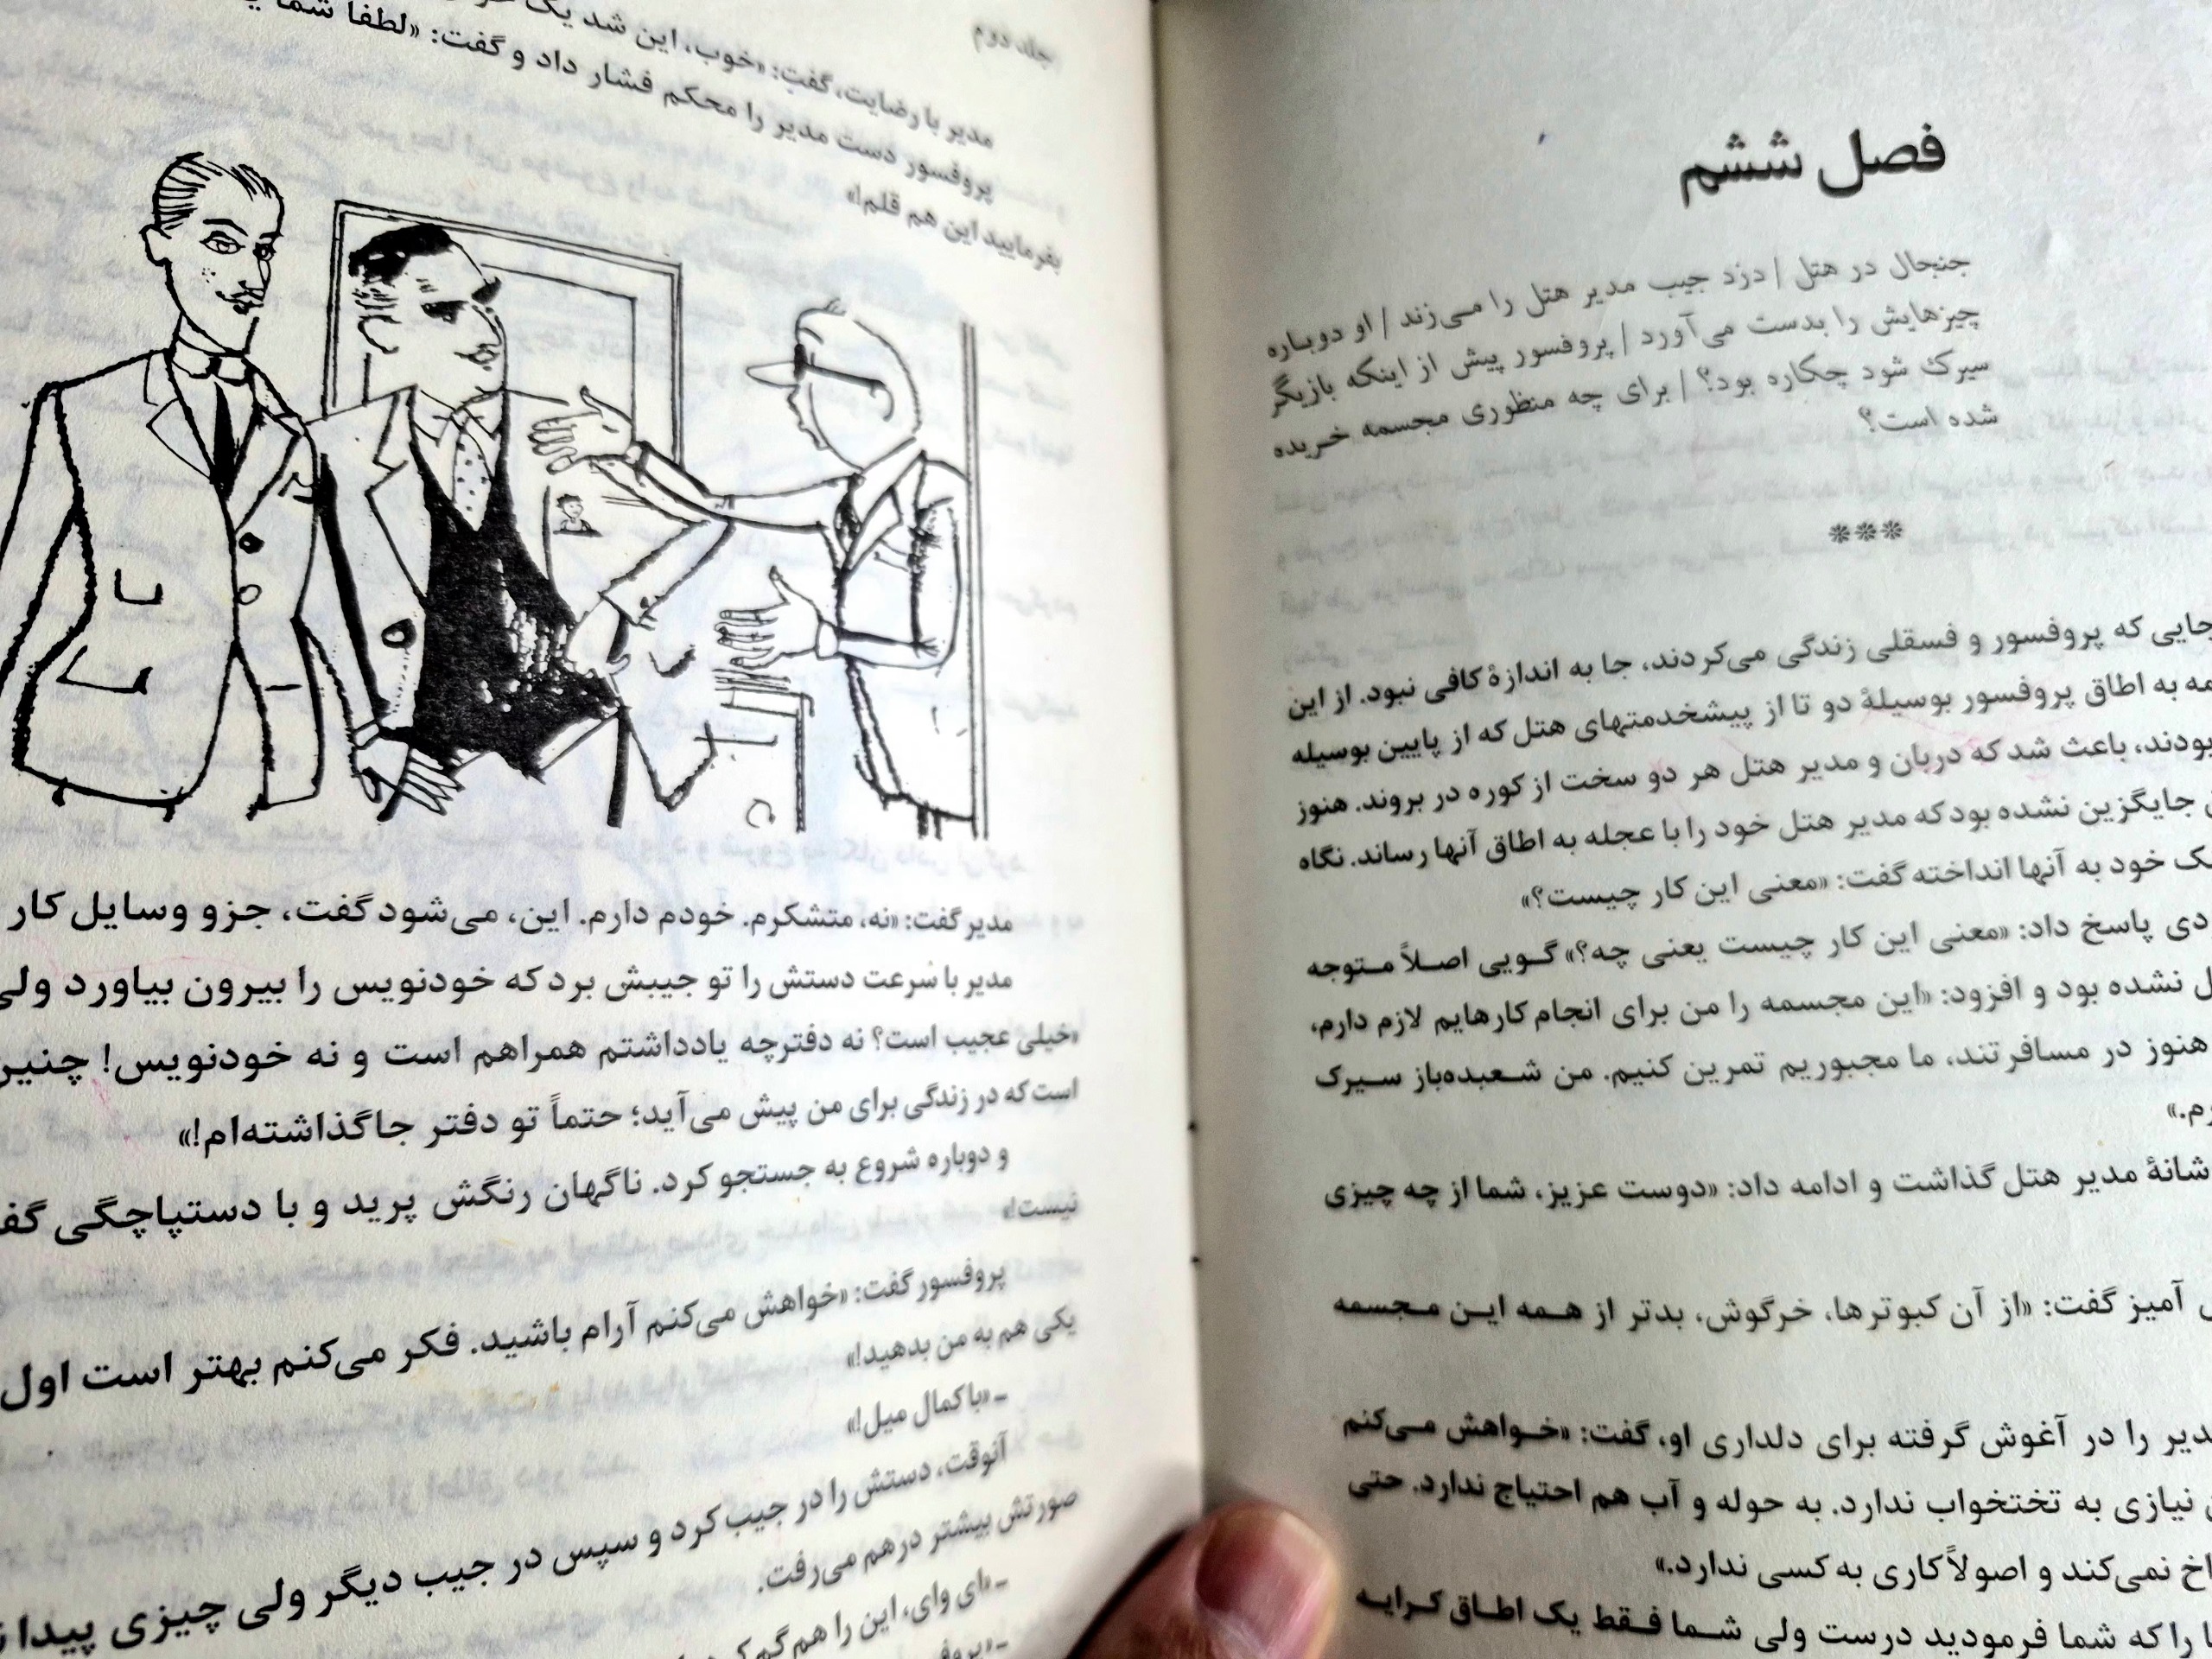 فصل ششم
جنجال در هتل / دزد جیب مدیر هتل را می‌زند / او دوباره
چیزهایش را بدست می‌آورد / پروفسور پیش از اینکه بازیگر
سیرک شود چکاره بود؟ / برای چه منظوری مجسمه خریده
شده است؟
***
جایی که پروفسور و فسقلی زندگی می‌کردند، جا به اندازهٔ کافی نبود. از این
به اطاق پروفسور بوسیلهٔ دو تا از پیشخدمتهای هتل که از پایین بوسیله
بودند، باعث شد که دربان و مدیر هتل هر دو سخت از کوره در بروند. هنوز
جایگزین نشده بود که مدیر هتل خود را با عجله به اطاق آنها رساند. نگاه
خود به آنها انداخته گفت: «معنی این کار چیست؟»
پاسخ داد: «معنی این کار چیست یعنی چه؟» گویی اصلاً متوجه
نشده بود و افزود: «این مجسمه را من برای انجام کارهایم لازم دارم،
هنوز در مسافرتند، ما مجبوریم تمرین کنیم. من شعبده‌باز سیرک
شانهٔ مدیر هتل گذاشت و ادامه داد: «دوست عزیز، شما از چه چیزی
آمیز گفت: «از آن کبوترها، خرگوش، بدتر از همه این مجسمه
را در آغوش گرفته برای دلداری او، گفت: «خواهش می‌کنم
نیازی به تختخواب ندارد. به حوله و آب هم احتیاج ندارد. حتی
نمی‌کند و اصولاً کاری به کسی ندارد.»
را که شما فرمودید درست ولی شما فقط یک اطاق کرایه
جلد دوم
مدیر با رضایت، گفت: «خوب، این شد یک
پروفسور دست مدیر را محکم فشار داد و گفت: «لطفا شما
بفرمایید این هم قلم!»
مدیر گفت: «نه، متشکرم. خودم دارم. این، می‌شود گفت، جزو وسایل کار
مدیر با سرعت دستش را تو جیبش برد که خودنویس را بیرون بیاورد ولی
«خیلی عجیب است؟ نه دفترچه یادداشتم همراهم است و نه خودنویس! چنین
است که در زندگی برای من پیش می‌آید؛ حتماً تو دفتر جا گذاشته‌ام!»
و دوباره شروع به جستجو کرد. ناگهان رنگش پرید و با دستپاچگی
نیست!»
پروفسور گفت: «خواهش می‌کنم آرام باشید. فکر می‌کنم بهتر است اول
یکی هم به من بدهید!»
ـ «با کمال میل!»
آنوقت، دستش را در جیب کرد و سپس در جیب دیگر ولی چیزی پیدا
صورتش بیشتر درهم می‌رفت.
ـ «ای وای، این را هم گم